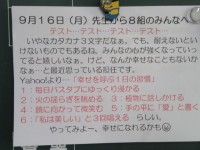 ９月１６日（月）先生から８組のみんなへ
テスト…テスト…テスト…テスト…
いやなカタカナ３文字だなぁ。でも、耐えないといけないものでもあるね。みんなのねが強くなっていってると言いなぁ。けど、なんか幸せなこともないかなぁ…と最近思っている担任です。
Yahooより…「幸せを呼ぶ１日の習慣」
１：毎日バスタブにゆっくり浸かる
２：火の揺らぎを眺める　３：植物に話しかける
４：鏡に向かって微笑む　５：手の平に「愛」と書く
６：「私は美しい」と３回唱える　らしい。
やってみよ～、幸せになれるかも